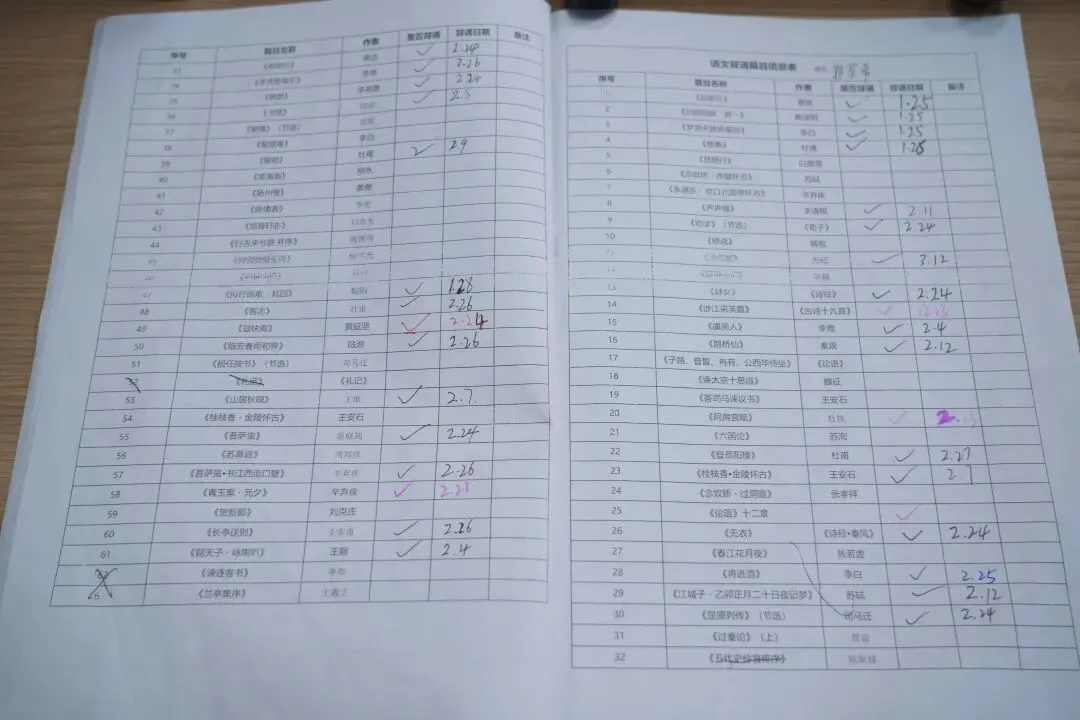 序号 篇目名称 作者 是否背诵 背诵日期 备注
✓ 2.24
✓ 2.26
✓ 2.24
36 ✓ 2.5
37 （节选）
38 李白
39 杜甫 ✓ 2.9
40 柳永
41 《扬州慢》 姜夔
42 《陈情表》 李密
43 《项脊轩志》 归有光
44 《归去来兮辞 并序》 陶渊明
《种树郭橐驼传》 柳宗元
47 《拟行路难·其四》 鲍照 ✓ 1.28
48 《客至》 杜甫 ✓ 2.26
49 《登快阁》 黄庭坚 ✓ 2.24
50 《临安春雨初霁》 陆游 ✓ 2.26
51 《报任安书》（节选） 司马迁
52 《礼运》 《礼记》
53 《山居秋暝》 王维 ✓ 2.7.
54 《桂枝香·金陵怀古》 王安石
55 《菩萨蛮》 温庭筠 ✓ 2.24
56 《苏幕遮》 周邦彦
57 《菩萨蛮•书江西造口壁》 辛弃疾 ✓ 2.26
58 《青玉案·元夕》 辛弃疾 ✓ 2.23
59 《贺新郎》 刘克庄
60 《长亭送别》 王实甫 ✓ 2.26
61 《朝天子·咏喇叭》 王磐 ✓ 2.4
《谏逐客书》 李斯
《兰亭集序》 王羲之
语文背诵篇目信息表
序号 篇目名称 作者 是否背诵 背诵日期 备注
1 ✓ 1.25
2 ✓ 1.25
3 《梦游天姥吟留别》 李白 ✓ 1.25
4 《登高》 杜甫 ✓ 1.28
5 《琵琶行》 白居易
6 《念奴娇 赤壁怀古》 苏轼
7 《永遇乐·京口北固亭怀古》 辛弃疾
8 《声声慢》 李清照 ✓ 2.11
9 《劝学》（节选） 《荀子》 ✓ 2.24
10 《师说》 韩愈
苏轼 ✓ 3.12
13 《静女》 《诗经》 ✓ 2.24
14 《涉江采芙蓉》 《古诗十九首》 ✓
15 《虞美人》 李煜 ✓ 2.4
16 《鹊桥仙》 秦观 ✓ 2.12
17 《子路、曾皙、冉有、公西华侍坐》 《论语》
18 《谏太宗十思疏》 魏征
19 《答司马谏议书》 王安石
20 《阿房宫赋》 杜牧 ✓
21 《六国论》 苏洵
22 《登岳阳楼》 杜甫 ✓ 2.27
23 《桂枝香•金陵怀古》 王安石 ✓
24 《念奴娇·过洞庭》 张孝祥
25 《论语》十二章 ✓
26 《无衣》 《诗经•秦风》 ✓ 2.24
27 《春江花月夜》 张若虚
28 《将进酒》 李白 ✓ 2.25
29 《江城子·乙卯正月二十日夜记梦》 苏轼 ✓ 2.12
30 《屈原列传》（节选） 司马迁 ✓ 2.24
31 《过秦论》（上） 贾谊
32 《五代史伶官传序》 欧阳修